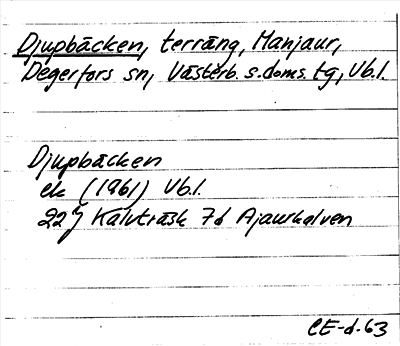 Djupbäcken, terräng, Manjaur,
Degerfors sn, Västerb. s. doms. tg, Vb.l.
Djupbäcken
ek (1961) Vb.l.
22 J Kalvträsk 7d Ajaurkälven
CE-d.-63